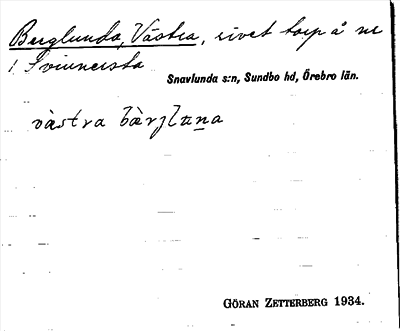 Berglunda, Västra, rivet torp å nr
1 Svinnersta
Snavlunda s:n, Sundbo hd, Örebro län.
västra bàrjluna
GÖRAN ZETTERBERG 1934.